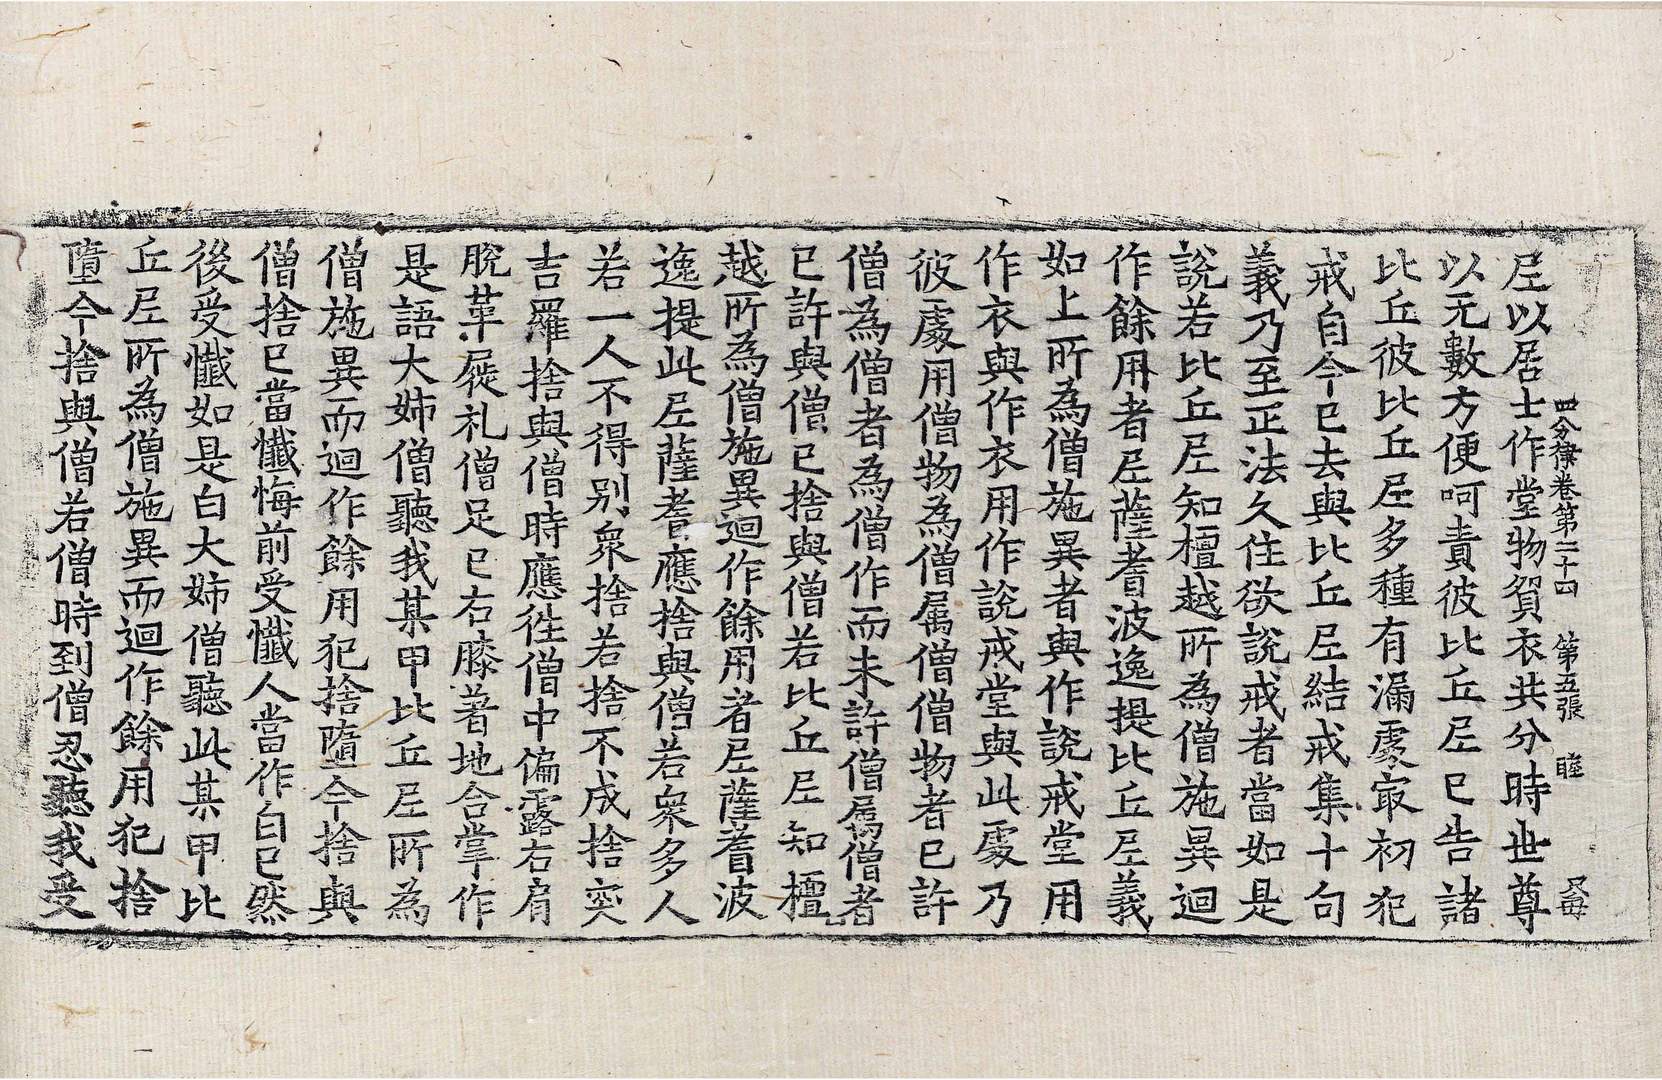 四分律卷第二十四　第五張　睦
尼以居士作堂物貿衣共分時世尊
以无數方便呵責彼比丘尼已告諸
比丘彼比丘尼多種有漏處冣初犯
戒自今已去與比丘尼結戒集十句
義乃至正法久住欲說戒者當如是
說若比丘尼知檀越所為僧施異迴
作餘用者尼薩耆波逸提比丘尼義
如上所為僧施異者與作說戒堂用
作衣與作衣用作說戒堂與此處乃
彼處用僧物為僧属僧僧物者已許
僧為僧者為僧作而未許僧属僧者
已許與僧已捨與僧若比丘尼知檀
越所為僧施異迴作餘用者尼薩耆波
逸提此尼薩耆應捨與僧若眾多人
若一人不得別眾捨若捨不成捨突
吉羅捨與僧時應徃僧中偏露右肩
脫革屣礼僧足已右膝著地合掌作
是語大姊僧聽我某甲比丘尼所為
僧施異而迴作餘用犯捨墮今捨與
僧捨已當懺悔前受懺人當作白已然
後受懺如是白大姊僧聽此某甲比
丘尼所為僧施異而迴作餘用犯捨
墮今捨與僧若僧時到僧忍聽我受